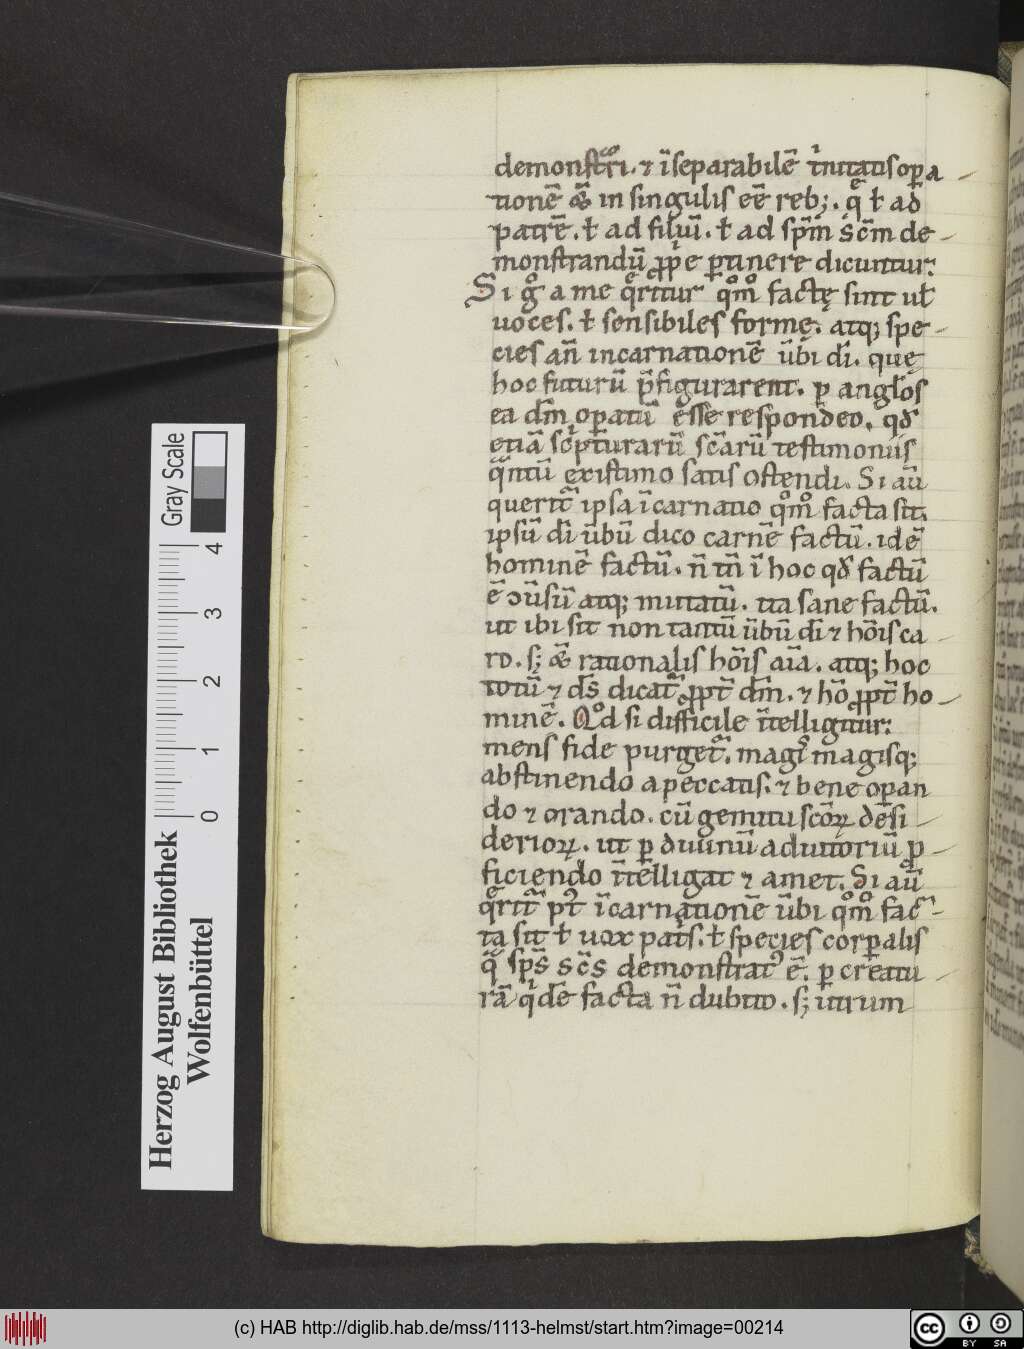 demonstrͣri. ⁊ īseparabilē tͥnitatis oꝑa
tionē & in singulis eē reb;. q̄ ł ad
patrē. ł ad filiuī. ł ad sp̄m sc̄m de-
monstrandū ꝓpͥe ꝑtinere dicuntur:
Si gͦ a me q̄ritur qͦmͦ factę sint uł
uoces. ł sensibiles formę. atq; spe-
cies an̄ incarnationē ūbi dī. quę
hoc futurū p̄figurarent. ꝑ angłos
ea dm̄ oꝑatū esse respondeo. qđ
etiā scͥpturarū scārū testimoniis
qͣntū existimo satis ostendi. Si aū
queritͬ ipsa īcarnatio qͦmͦ facta sit.
ipsū dī ūbū dico carnē factū. idē
hominē factū. n̄ tn̄ ī hoc qđ factū
ē ↄūsū atq; mutatū. ita sane factū.
ut ibi sit non tantū ūbū dī ⁊ hōīs ca-
ro. s; & rationalis hōīs aīa. atq; hoc
totū ⁊ ds̄ dicatͬ ꝓpt̄ dm̄. ⁊ hō ꝓpt̄ ho-
minē. Qͦd si difficile ītelligitur:
mens fide purgetͬ. magͥ magisq;
abstinendo a peccatis. ⁊ bene oꝑan
do ⁊ orando. cū gemitu scōꝝ desi-
derioꝝ. ut ꝑ diuinū adiutoriū ꝓ-
ficiendo ītelligat ⁊ amet. Si aū
q̄ritͬ pͦt īcarnationē ūbi qͦmͦ fac-
ta sit ł uox pat̄s. ł species corꝑalis
qͣ sp̄s sc̄s demonstratꝰ ē. ꝑ creatu-
rā qͥdē facta n̄ dubito. s; utrum
Herzog August Bibliothek
Wolfenbüttel
Gray Scale
0 1 2 3 4
(c) HAB http://diglib.hab.de/mss/1113-helmst/start.htm?image=00214
cc BY SA